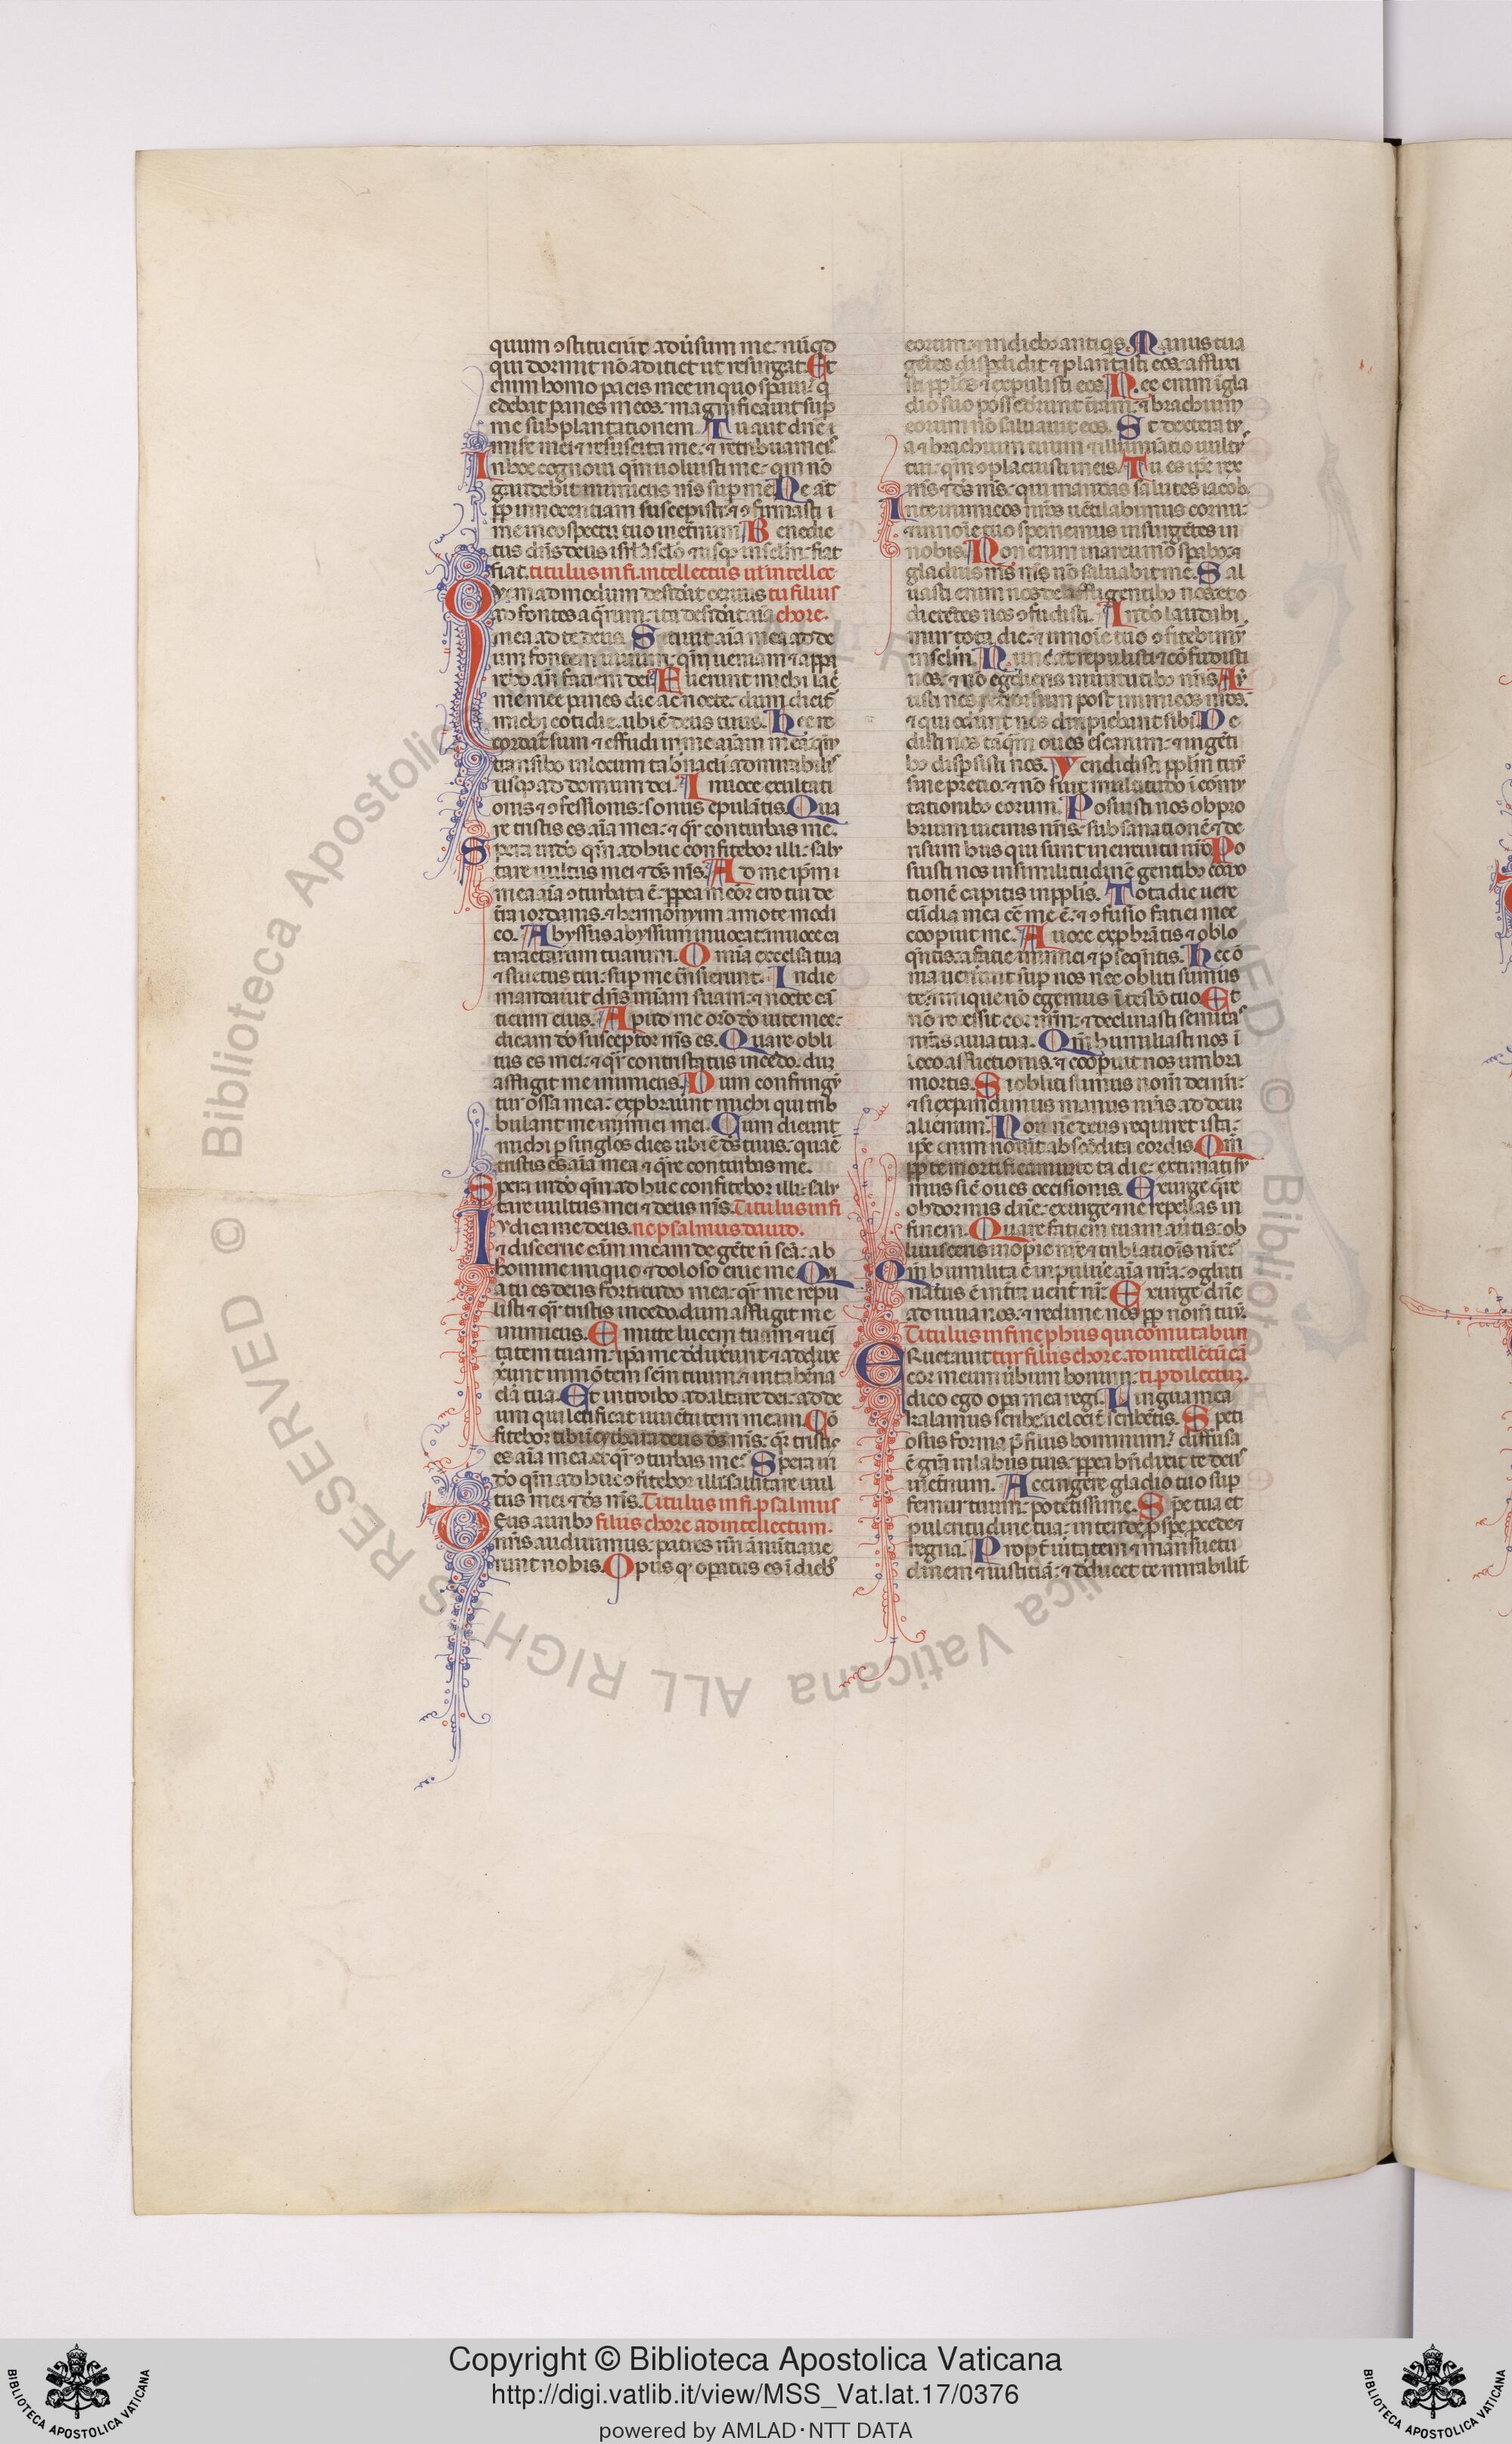 quum ↄstituerūt aduīsum me. nūqd
qui dormit nō adiciet ut resurgat. Et
enim homo pacis mee in quo sp̄aui. q̄
edebat panes meos. magnificauit sup̄
me subplantationem. Tu aut dn̄e i
mise mei ⁊ resuscita me. ⁊ retribuam eis
In hoc cognoui qm̄ uoluisti me. qm̄ nō
gaudebit inimicus m̄s sup̄ me. Me aūt
pp̄ innocentiam suscepisti. ⁊ ↄfirmasti i
me in cōspectu tuo in et̄num. Benedic
tus dn̄s deus isrl̄ a sclō ⁊ usq; in sclm̄. fiat
fiat. titulus in fi. intellectus ut intellec
Quem ad modum desid̄at ceruus tu filiis
ad fontes aq̄rum. ita desid̄at aīa chore.
mea ad te deus. Sitiuit aīa mea ad de
um fontem uiuum. qm̄ ueniam ⁊ appa
rebo an̄ faciem dei. Fuerunt michi lac̄
me mee panes die ac nocte. dum dicit̄
michi cotidie. ubi ē deus tuus. Hec re
cordat̄ sum ⁊ effudi in me aīam meā. qm̄
transibo in locum tab̄naculi admirabilis
usq; ad domum dei. In uoce exultati
onis ⁊ ↄfessionis. sonus epulātis. Qua
re tristis es aīa mea. ⁊ qr̄ conturbas me.
Spera in dō qm̄ ad huc confitebor illi. salu
tare uultus mei ⁊ ds̄ m̄s. Ad me ip̄m
mea aīa ↄturbata ē. pp̄ea memor ero tui de
tr̄a iordanis. ⁊ hermonijm a monte modi
co. Abyssus abyssum inuocat. in uoce ca
taractarum tuarum. Omīa excelsa tua
⁊ fluctus tui. sup̄ me tn̄sierunt. In die
mandauit dn̄s mīam suam. ⁊ nocte cā
ticum eius. Apud me orō dō uite mee.
dicam dō susceptor m̄s es. Quare obli
tus es mei. ⁊ qr̄ contristatus incedo. dum
affligit me inimicus. Dum confringū
tur ossa mea. exp̄braūnt michi qui trib
bulant me inimici mei. Cum dicunt
michi p̄ singlos dies ubi ē ds̄ tuus. quare
tristis es aīa mea ⁊ qr̄e conturbas me.
Spera in dō qm̄ ad huc confitebor illi. salu
tare uultus mei ⁊ deus m̄s. Titulus in fi
Iudica me deus. ne psalmus dauid.
⁊ discerne cām meam de gēte n̄ scā. ab
homine iniquo ⁊ doloso erue me. Qa
a tu es deus fortitudo mea. qr̄ me repu
listi ⁊ qr̄ tristis incedo. dum affligit me
inimicus. Emitte lucem tuam ⁊ ueri
tatem tuam. ip̄a me dēduxerunt ⁊ addux
xerunt in mōtem scm̄ tuum. ⁊ in tab̄na
cl̄a tua. Et introibo ad altare dei. ad de
um qui letificat iuuētutem meam. Cō
fitebor tibi in cythara deus ds̄ m̄s. qr̄ tristis
es aīa mea. et qr̄ ↄturbas me. Spera in
dō qm̄ ad huc ↄfitebor illi. salutare uul
tus mei ⁊ ds̄ m̄s. Titulus in fi. psalmus
Deus aurib; filiis chore ad intellectum.
nr̄is audiuimus. patres nr̄i ānūtiaue
runt nobis. Opus q̄ op̄atus es ī dieb;
eorum. ⁊ in dieb; antiq̄s. Manus tua
gētes disp̄didit ⁊ plantasti eos. afflixi
sti pp̄los ⁊ expulisti eos. Nec enim ī gla
dio suo possederunt tr̄am. ⁊ brachium
eorum nō saluauit eos. Set dextera tu
a ⁊ brachium tuum ⁊ illuminatio uultꝰ
tui. qm̄ ↄplacuisti in eis. Tu es ip̄e rex
m̄s ⁊ ds̄ m̄s. qui mandas salutes iacob.
In te inimicos nr̄os uētilabimus cornu.
⁊ in noīe tuo spernemus insurgētes in
nobis. Non enim in arcu meō sp̄abo. ⁊
gladius m̄s nō saluabit me. Sal
uasti enim nos de affligentib; nos. ⁊ o
dientes nos ↄfudisti. In dō laudabi
mur tota die. ⁊ in noīe tuo ↄfitebimur
in sclm̄. Nunc āt repulisti ⁊ cōfudisti
nos. ⁊ nō egdieris in uirtutib; nr̄is. Au
tisti nos retrorsum post inimicos nr̄os.
⁊ qui oderunt nos diripiebant sibi. De
disti nos tāq̄m oues escarum. ⁊ in gēti
b; disp̄sisti nos. Vendidisti pp̄lm tuū
sine precio. ⁊ nō fuit multitudo ī comu
tationib; eorum. Posuisti nos obpro
brium uicinis nr̄is. subsanationē ⁊ de
risum his qui sunt in circuitu nr̄o. Po
suisti nos in similitudinē gentib; cōmo
tionē capitis in pp̄lis. Tota die uere
cūdia mea cō̄ me ē. ⁊ ↄfusio faciei mee
coopuit me. A uoce exp̄brātis ⁊ oblo
q̄ntis. a facie inimici ⁊ p̄seq̄ntis. Hec ō
nia uenerunt sup̄ nos nec obliti sumus
te. ⁊ inique nō egimus ī testō tuo. Et
nō recessit cor nr̄m. ⁊ declinasti semitas
nr̄as a uia tua. Qm̄ humiliasti nos ī
loco afflictionis. ⁊ coopuit nos umbra
mortis. Si obliti sumus nom̄ dei nr̄i.
⁊ si expandimus manus nr̄as ad deum
alienum. Nonne deus requiret ista.
ip̄e enim nouit abscōdita cordis. Qm̄
pp̄ te mortificamur tota die. extimati su
mus sic̄ oues occisionis. Exurge qr̄e
obdormis dn̄e. exurge ⁊ ne repellas in
finem. Quare faciem tuam au̇tis. ob
liuisceris inopie nr̄e ⁊ tribłationis nr̄e.
Qm̄ humiliata ē in puluere aīa nr̄a. ↄgluti
natus ē in tr̄a uent̄ nr̄. Exurge dn̄e
adiuua nos. ⁊ redime nos pp̄ nom̄ tuū.
Titulus in fine p his qui cōmutabun
Eructauit tur filiis chore. ad intellectū cā
cor meum u̇bum bonum. ti. p dilectum.
dico ego op̄a mea regi. Lingua mea
kalamus scribe. uelocit̄ scribētis. Speti
osus forma p̄ filiis hominum. diffusa
ē grā in labiis tuis. pp̄ea bn̄dixit te deus
in et̄num. Accingere gladio tuo sup̄
femur tuum. potētissime. Spe tua et
pulcritudine tua. intende. p̄spe p̄cede ⁊
regna. Propt̄ ūitatem ⁊ mansuetu
dinem ⁊ iustitiā. ⁊ dēducet te mirabilit̄
Copyright © Biblioteca Apostolica Vaticana
http://digi.vatlib.it/view/MSS_Vat.lat.17/0376
powered by AMLAD·NTT DATA
BIBLIOTECA APOSTOLICA VATICANA
BIBLIOTECA APOSTOLICA VATICANA
© Biblioteca Apostolica Vaticana ALL RIGHTS RESERVED